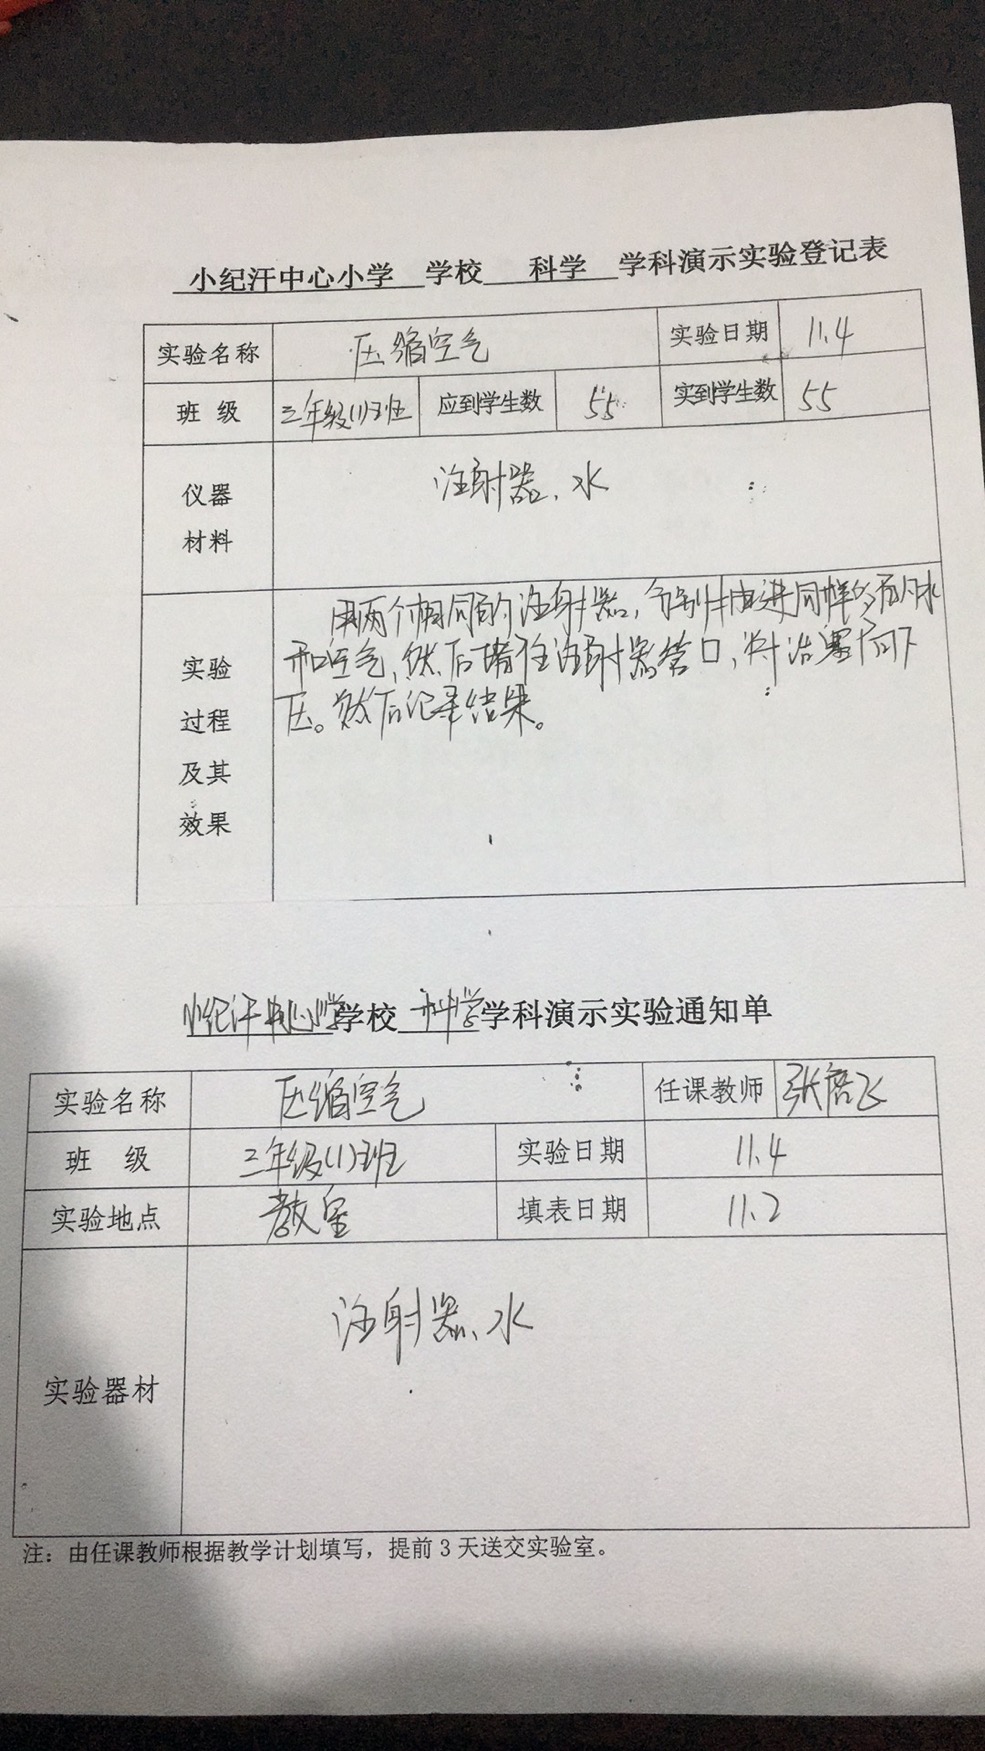 小纪汗中心小学 学校 科学 学科演示实验登记表
实验名称 压缩空气 实验日期 11.4
班 级 三年级(1)班 应到学生数 55 实到学生数 55
仪器 注射器、水
材料
用两个相同的注射器,分别抽进同样多的水
和空气,然后堵住注射器管口,将活塞向下
压。然后记录结果。
实验
过程
及其
效果
小纪汗中心小学学校 科学学科演示实验通知单
实验名称 压缩空气 任课教师 张
班 级 三年级(1)班 实验日期 11.4
实验地点 教室 填表日期 11.2
注射器、水
实验器材
注：由任课教师根据教学计划填写，提前 3 天送交实验室。